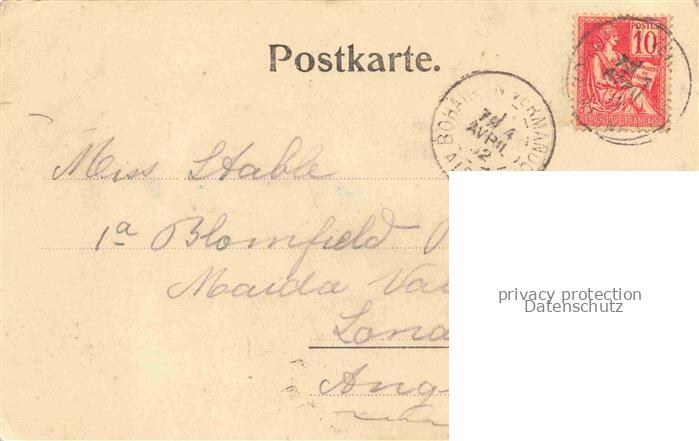 Postkarte.
POSTES
10
RÉPUBLIQUE FRANÇAISE
BOHAIN EN VERMANDO
AVRIL
02
Miss Stable
1a Blomfield
Maida Va
Lon
Ang
privacy protection
Datenschutz